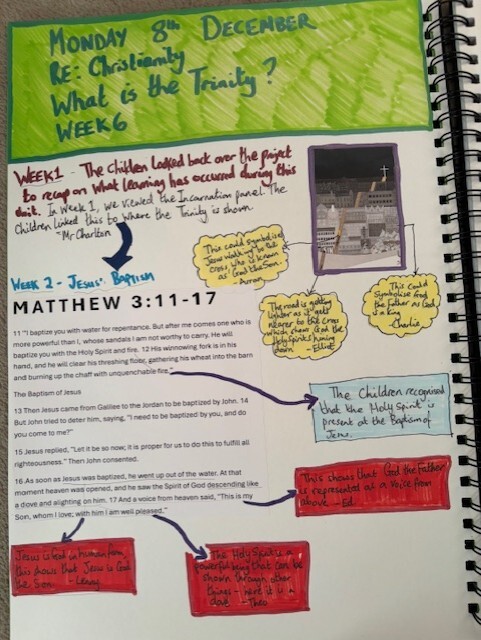 MONDAY 8th DECEMBER
RE: Christianity
What is the Trinity?
WEEK 6
WEEK 1 - The Children looked back over the project
to recap on what learning has occurred during this
unit. In Week 1, we viewed the Incarnation panel. The
Children linked this to where the Trinity is shown.
- Mr Charlton
This could symbolise
Jesus walking to the
cross, who is known
as God the Son.
The road is getting
lighter as it gets
nearer to the cross
which shows God the
Holy Spirit shining
down - Elliot
This could
symbolise God
the Father as God
is a King
- Charlie
WEEK 2 - JESUS' BAPTISM
MATTHEW 3:11-17
11 "I baptize you with water for repentance. But after me comes one who is
more powerful than I, whose sandals I am not worthy to carry. He will
baptize you with the Holy Spirit and fire. 12 His winnowing fork is in his
hand, and he will clear his threshing floor, gathering his wheat into the barn
and burning up the chaff with unquenchable fire."
The Baptism of Jesus
13 Then Jesus came from Galilee to the Jordan to be baptized by John. 14
But John tried to deter him, saying, "I need to be baptized by you, and do
you come to me?"
15 Jesus replied, "Let it be so now; it is proper for us to do this to fulfill all
righteousness." Then John consented.
16 As soon as Jesus was baptized, he went up out of the water. At that
moment heaven was opened, and he saw the Spirit of God descending like
a dove and alighting on him. 17 And a voice from heaven said, "This is my
Son, whom I love; with him I am well pleased."
The Children recognised
that the Holy Spirit is
present at the Baptism of
Jesus.
This shows that God the Father
is represented at a voice from
above - Ed
Jesus is God in human form
this shows that Jesus is God
the Son. - Lenny
The Holy Spirit is a
powerful being that can be
shown through other
things - here it is a
dove - Theo